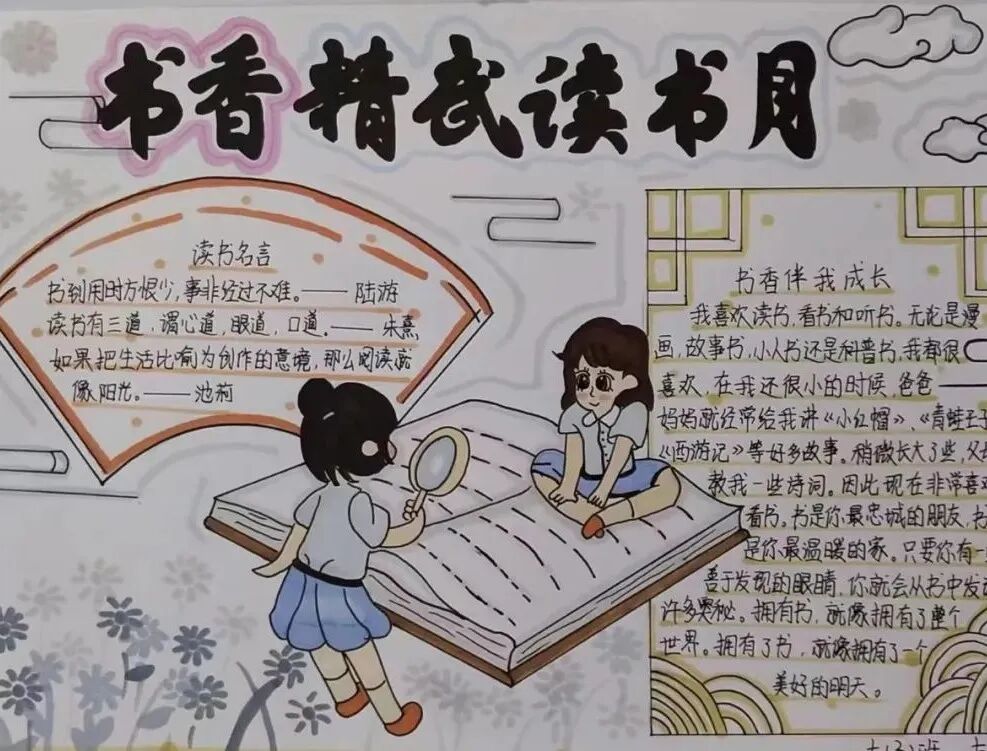 书香精武读书月
读书名言
书到用时方恨少，事非经过不难。—— 陆游
读书有三道，谓心道，眼道，口道。—— 朱熹
如果把生活比喻为创作的意境，那么阅读就
像阳光。—— 池莉
书香伴我成长
我喜欢读书，看书和听书。无论是漫
画，故事书，小人书还是科普书，我都很
喜欢，在我还很小的时候，爸爸
妈妈就经常给我讲《小红帽》、《青蛙王子
《西游记》等好多故事。稍微长大了些，父
教我一些诗词。因此现在非常喜
看书。书是你最忠城的朋友，书
是你最温暖的家。只要你有一
善于发现的眼睛，你就会从书中发
许多奥秘。拥有书，就像拥有了整个
世界。拥有了书，就像拥有了一个
美好的明天。